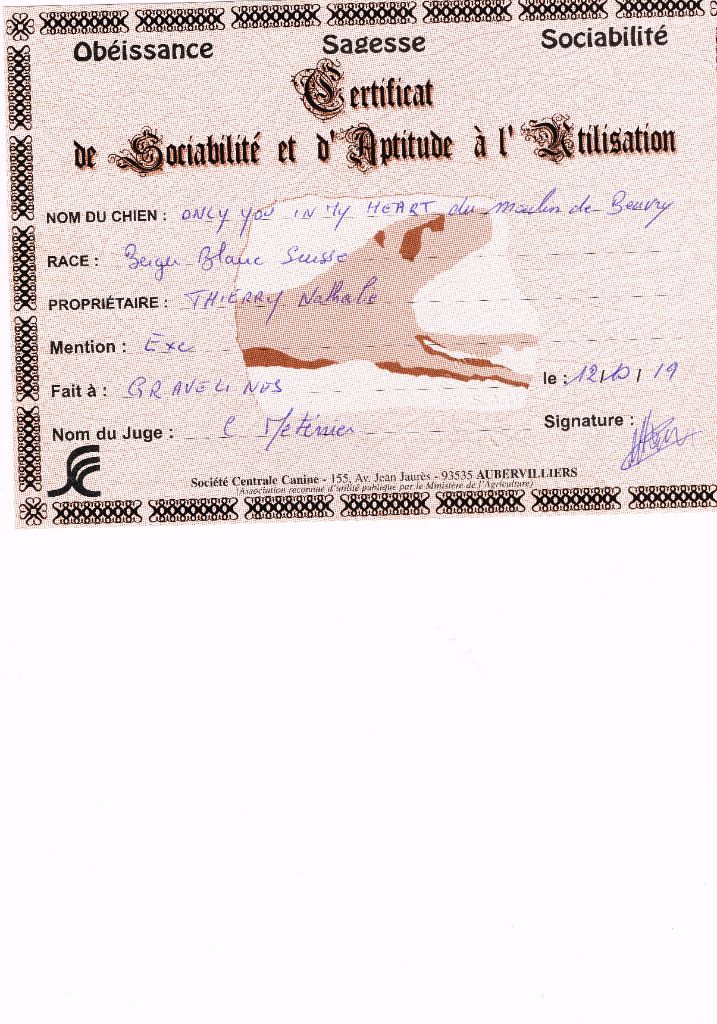 Obéissance Sagesse Sociabilité
Certificat
de Sociabilité et d'Aptitude à l'Utilisation
NOM DU CHIEN : ONLY YOU IN MY HEART du moulin de Beuvry
RACE : Berger Blanc Suisse
PROPRIÉTAIRE : THIERRY Nathalie
Mention : Exc
Fait à : GRAVELINES le : 12/10/19
Nom du Juge : C Meténier Signature :
Société Centrale Canine - 155, Av. Jean Jaurès - 93535 AUBERVILLIERS
(Association reconnue d'utilité publique par le Ministère de l'Agriculture)